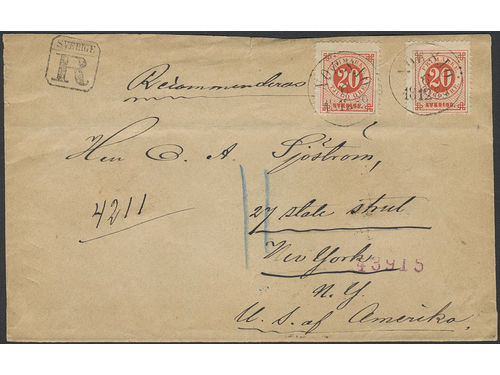 SVERIGE
R
Recommenderas
20
TJUGO
SVERIGE.
20
SVERIGE.
18 12
Herr C. A. Sjöstrom,
4211
27 state strut
New York
43915
N.Y.
U. S. af Amerika.